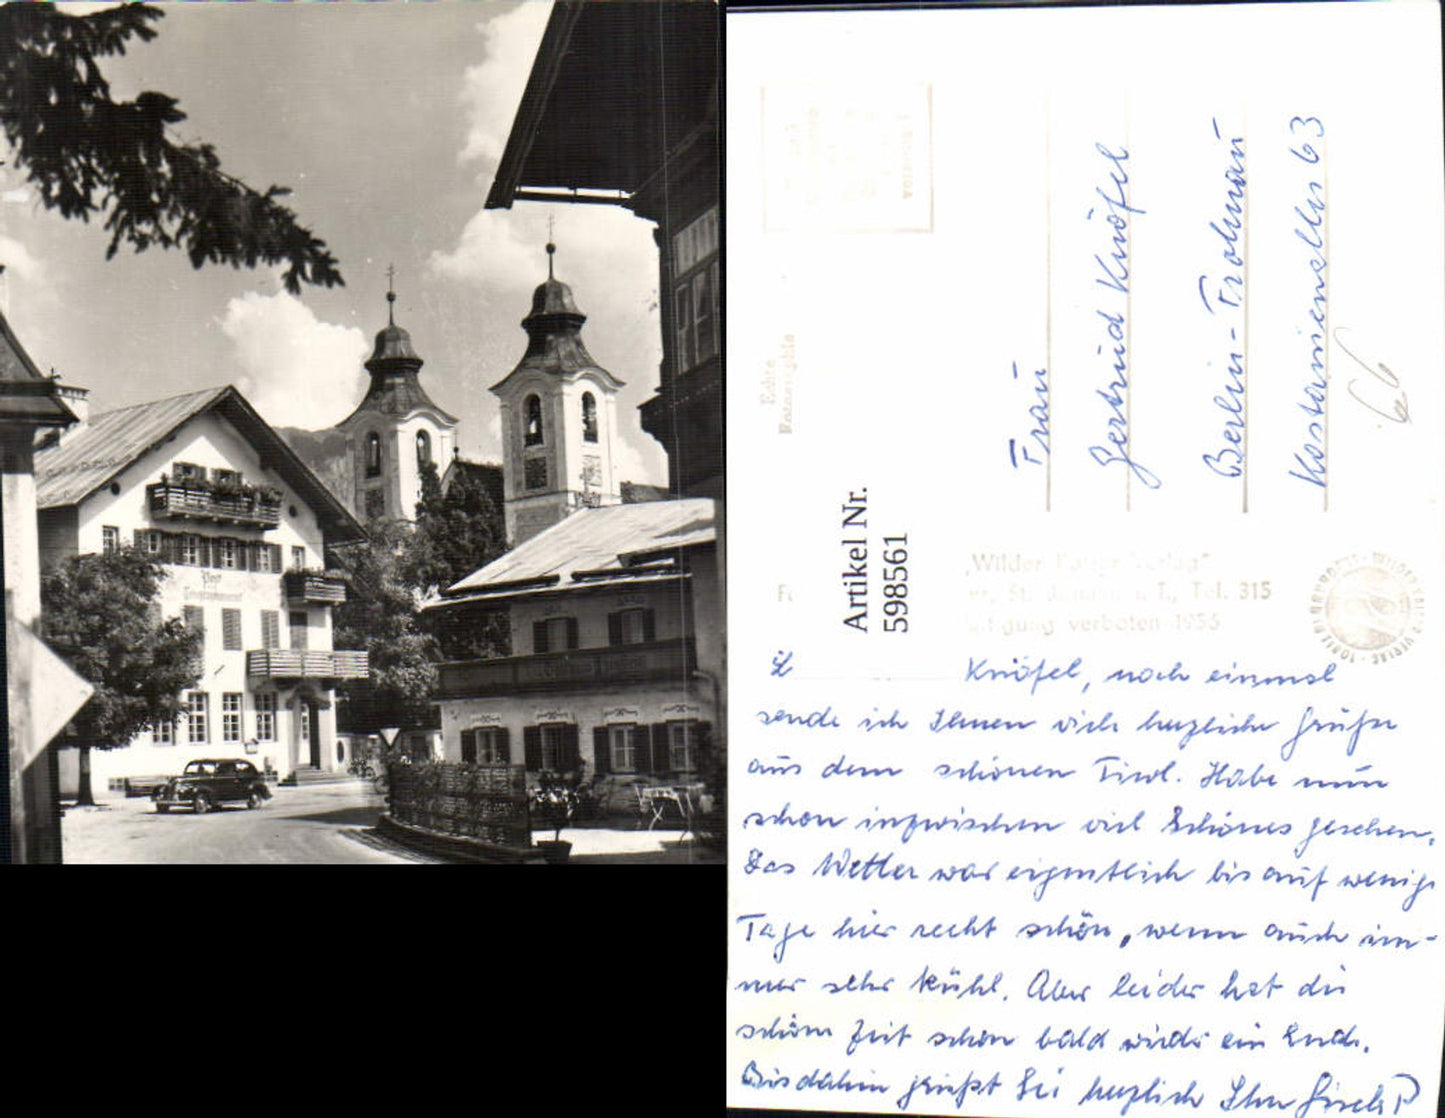 Post
Frau
Gertrud Knöfel
Berlin-Frohnau
Kastanienallee 63
66
Echte
Artikel Nr.
598561
"Wilder Kaiser Verlag"
St. Johann i. T., Tel. 315
verboten 1956
Knöfel, noch einmal
sende ich Ihnen viele herzliche Grüße
aus dem schönen Tirol. Habe nun
schon inzwischen viel Schönes gesehen.
Das Wetter war eigentlich bis auf wenige
Tage hier recht schön, wenn auch im-
mer sehr kühl. Aber leider hat die
schöne Zeit schon bald wieder ein Ende.
Bisdahin grüßt Sie herzlich Ihre Gisela P